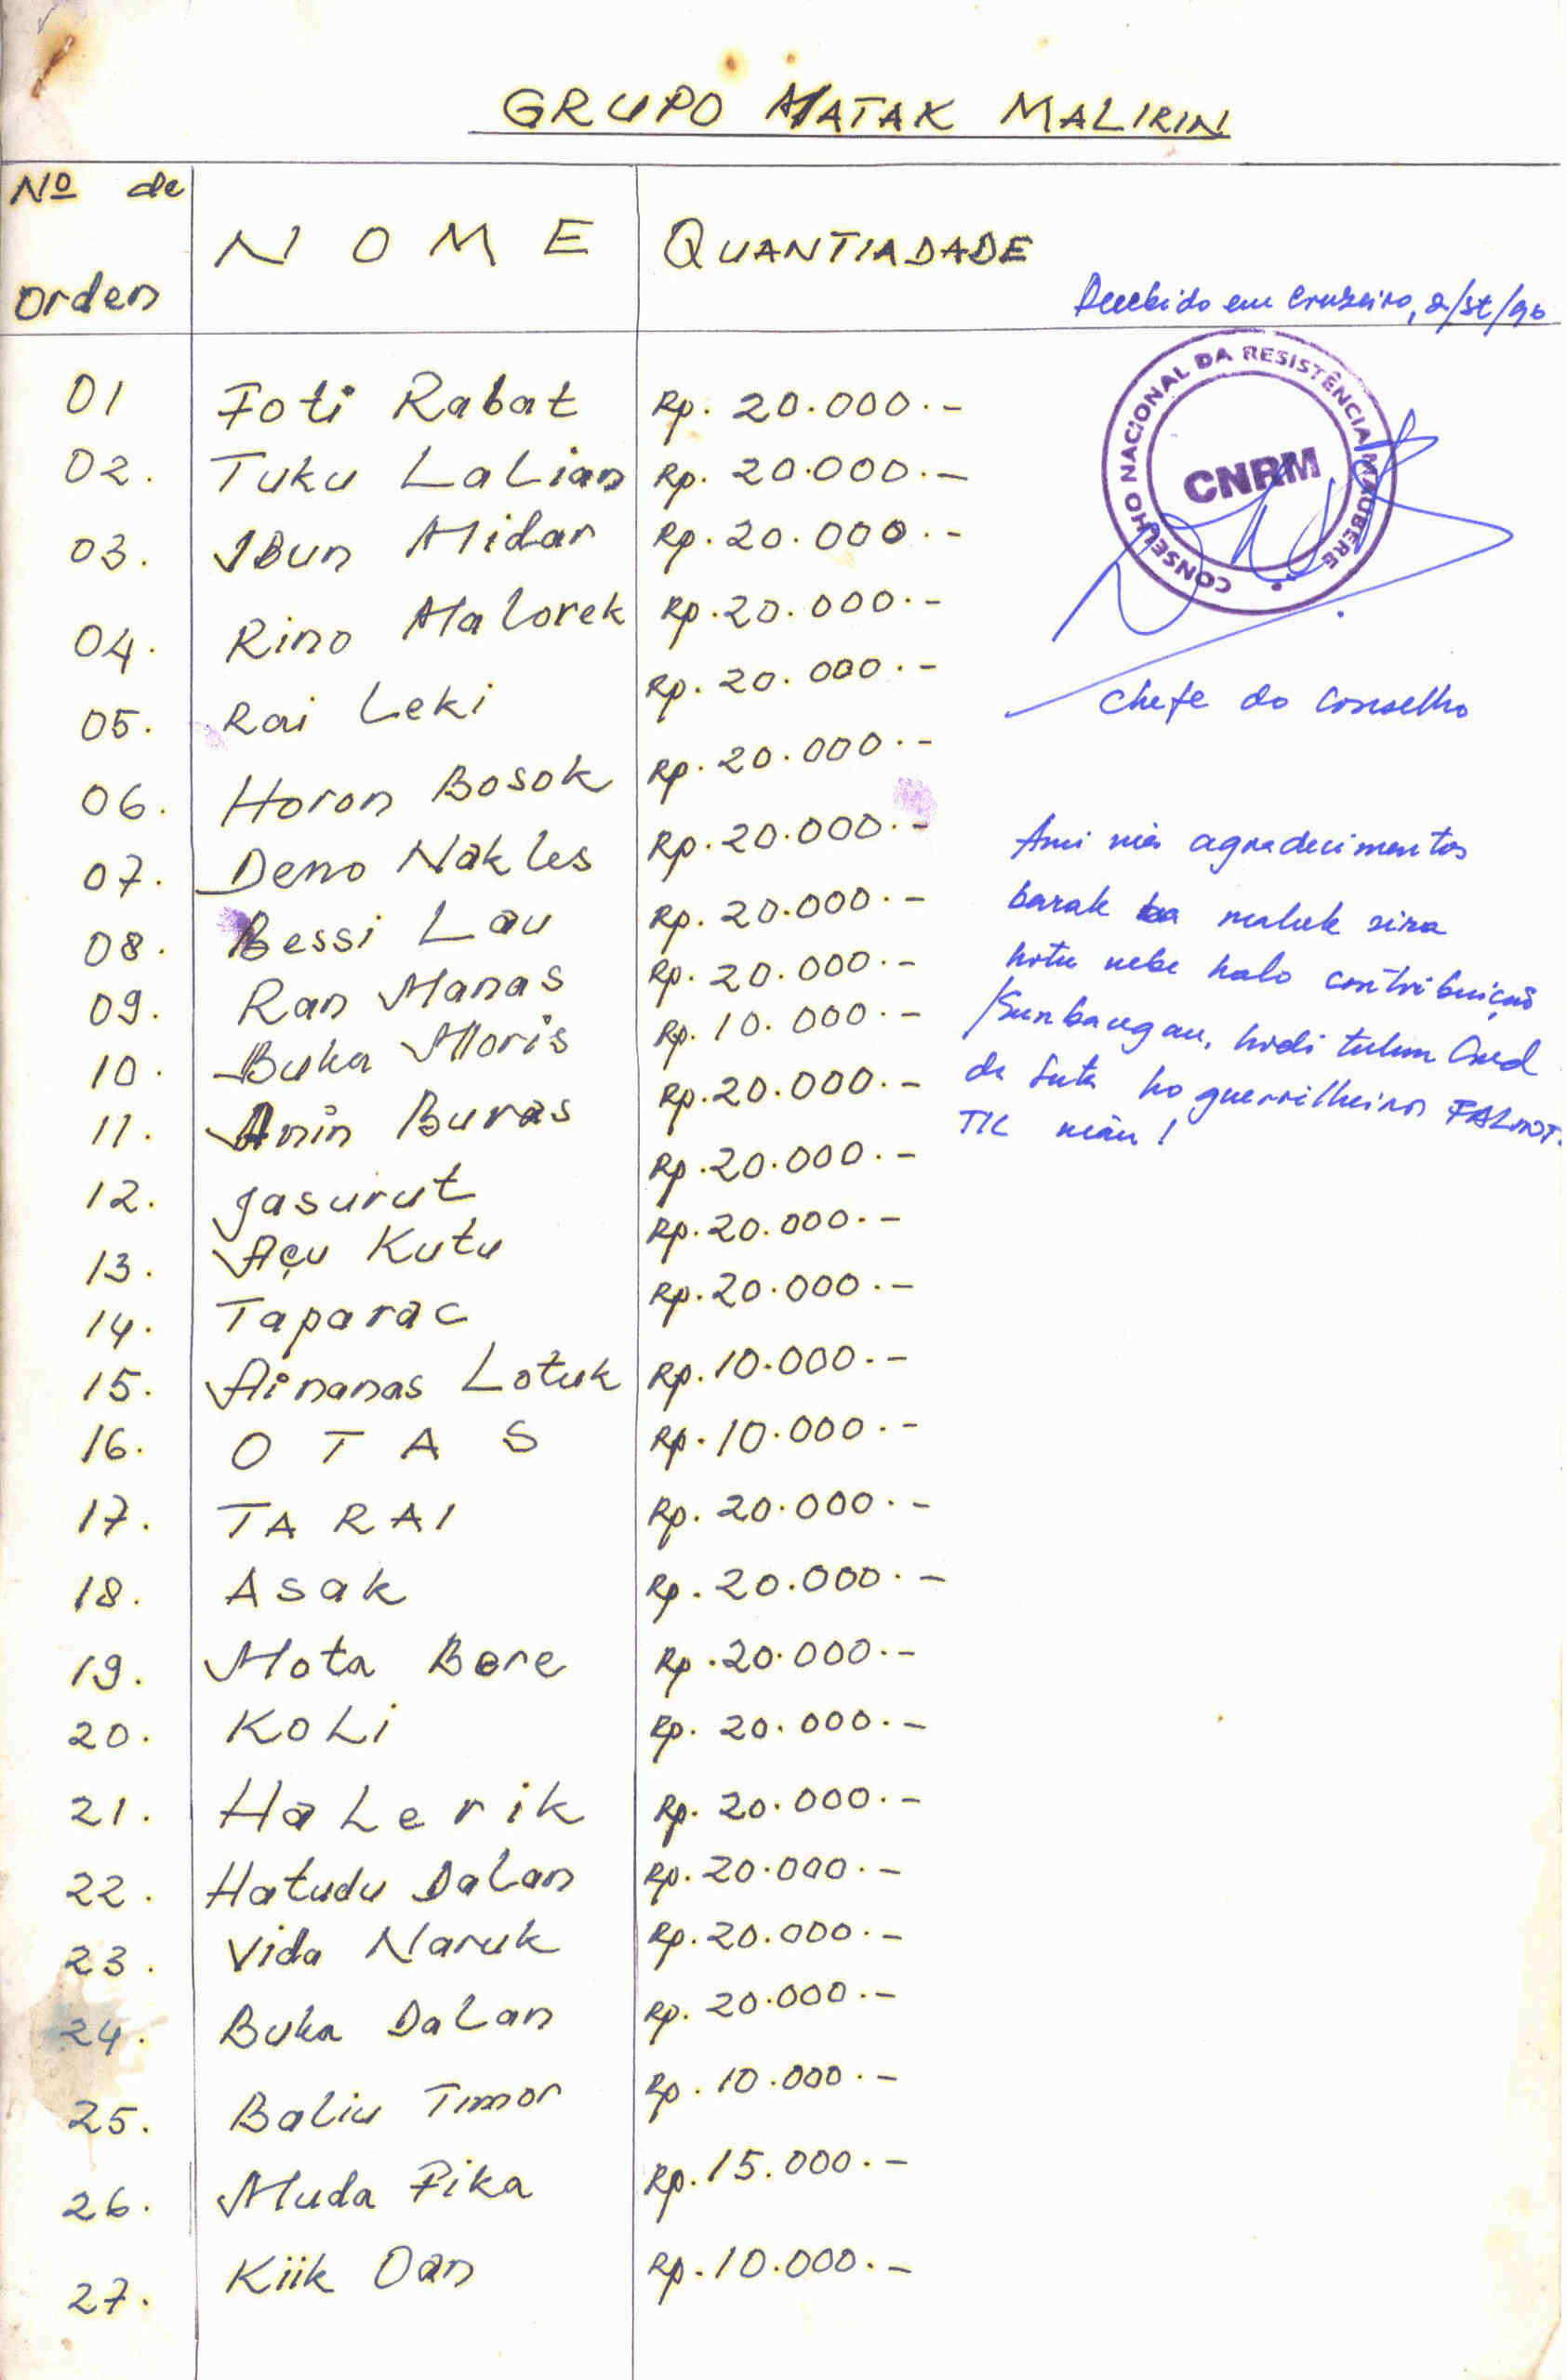 GRUPO MATAK MALIRIN
Nº de Orden
NOME
QUANTIADADE
Recebido em Cruzeiro, 2/St/90
01 Foti Rabat Rp. 20.000.-
02. Tuku LaLian Rp. 20.000.-
03. Ibun Midar Rp. 20.000.-
04. Rino Malorek Rp. 20.000.-
05. Rai Leki Rp. 20.000.-
06. Horon Bosok Rp. 20.000.-
07. Deno Nakles Rp. 20.000.-
08. Bessi Lau Rp. 20.000.-
09. Ran Manas Rp. 20.000.-
10. Buka Moris Rp. 10.000.-
11. Anin Buras Rp. 20.000.-
12. Jasurut Rp. 20.000.-
13. Açu Kutu Rp. 20.000.-
14. Taparac Rp. 20.000.-
15. Ainanas Lotuk Rp. 10.000.-
16. OTAS Rp. 10.000.-
17. TARAI Rp. 20.000.-
18. Asak Rp. 20.000.-
19. Mota Bere Rp. 20.000.-
20. KoLi Rp. 20.000.-
21. HaLerik Rp. 20.000.-
22. Hatudu DaLan Rp. 20.000.-
23. Vida Naruk Rp. 20.000.-
24. Buka DaLan Rp. 20.000.-
25. Baliu Timor Rp. 10.000.-
26. Muda Fika Rp. 15.000.-
27. Kiik Oan Rp. 10.000.-
CONSELHO NACIONAL DA RESISTÊNCIA MAUBERE
CNRM
Chefe do Conselho
Ami nia agradecimentos
barak ba maluk sira
hotu nebe halo contribuição
/Sunbangan, hodi tulun
da luta ho guerrilheiros FALINT
TIL nian!